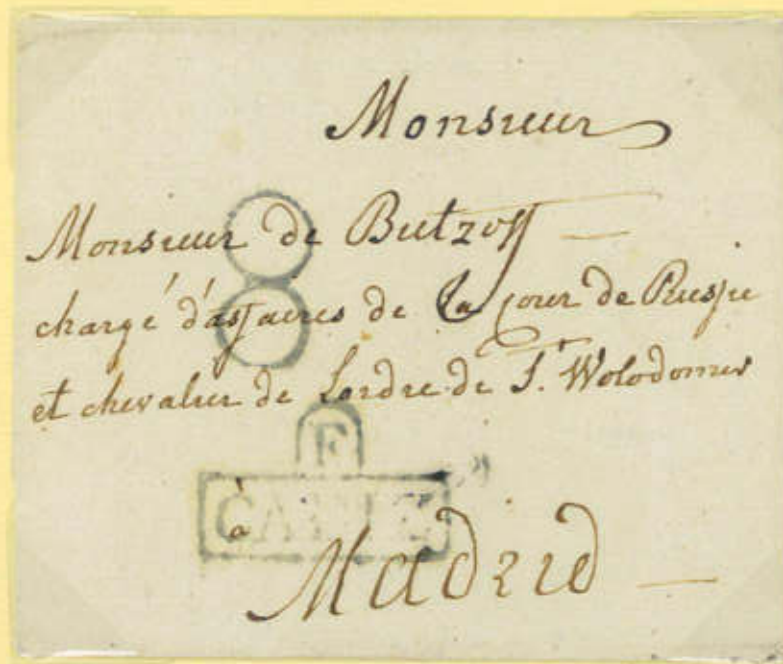 Monsieur
Monsieur de Butzoff
chargé d'affaires de la Cour de Russie
et chevalier de Lordre de St. Wolodomer
F
CADIZ
à Madrid